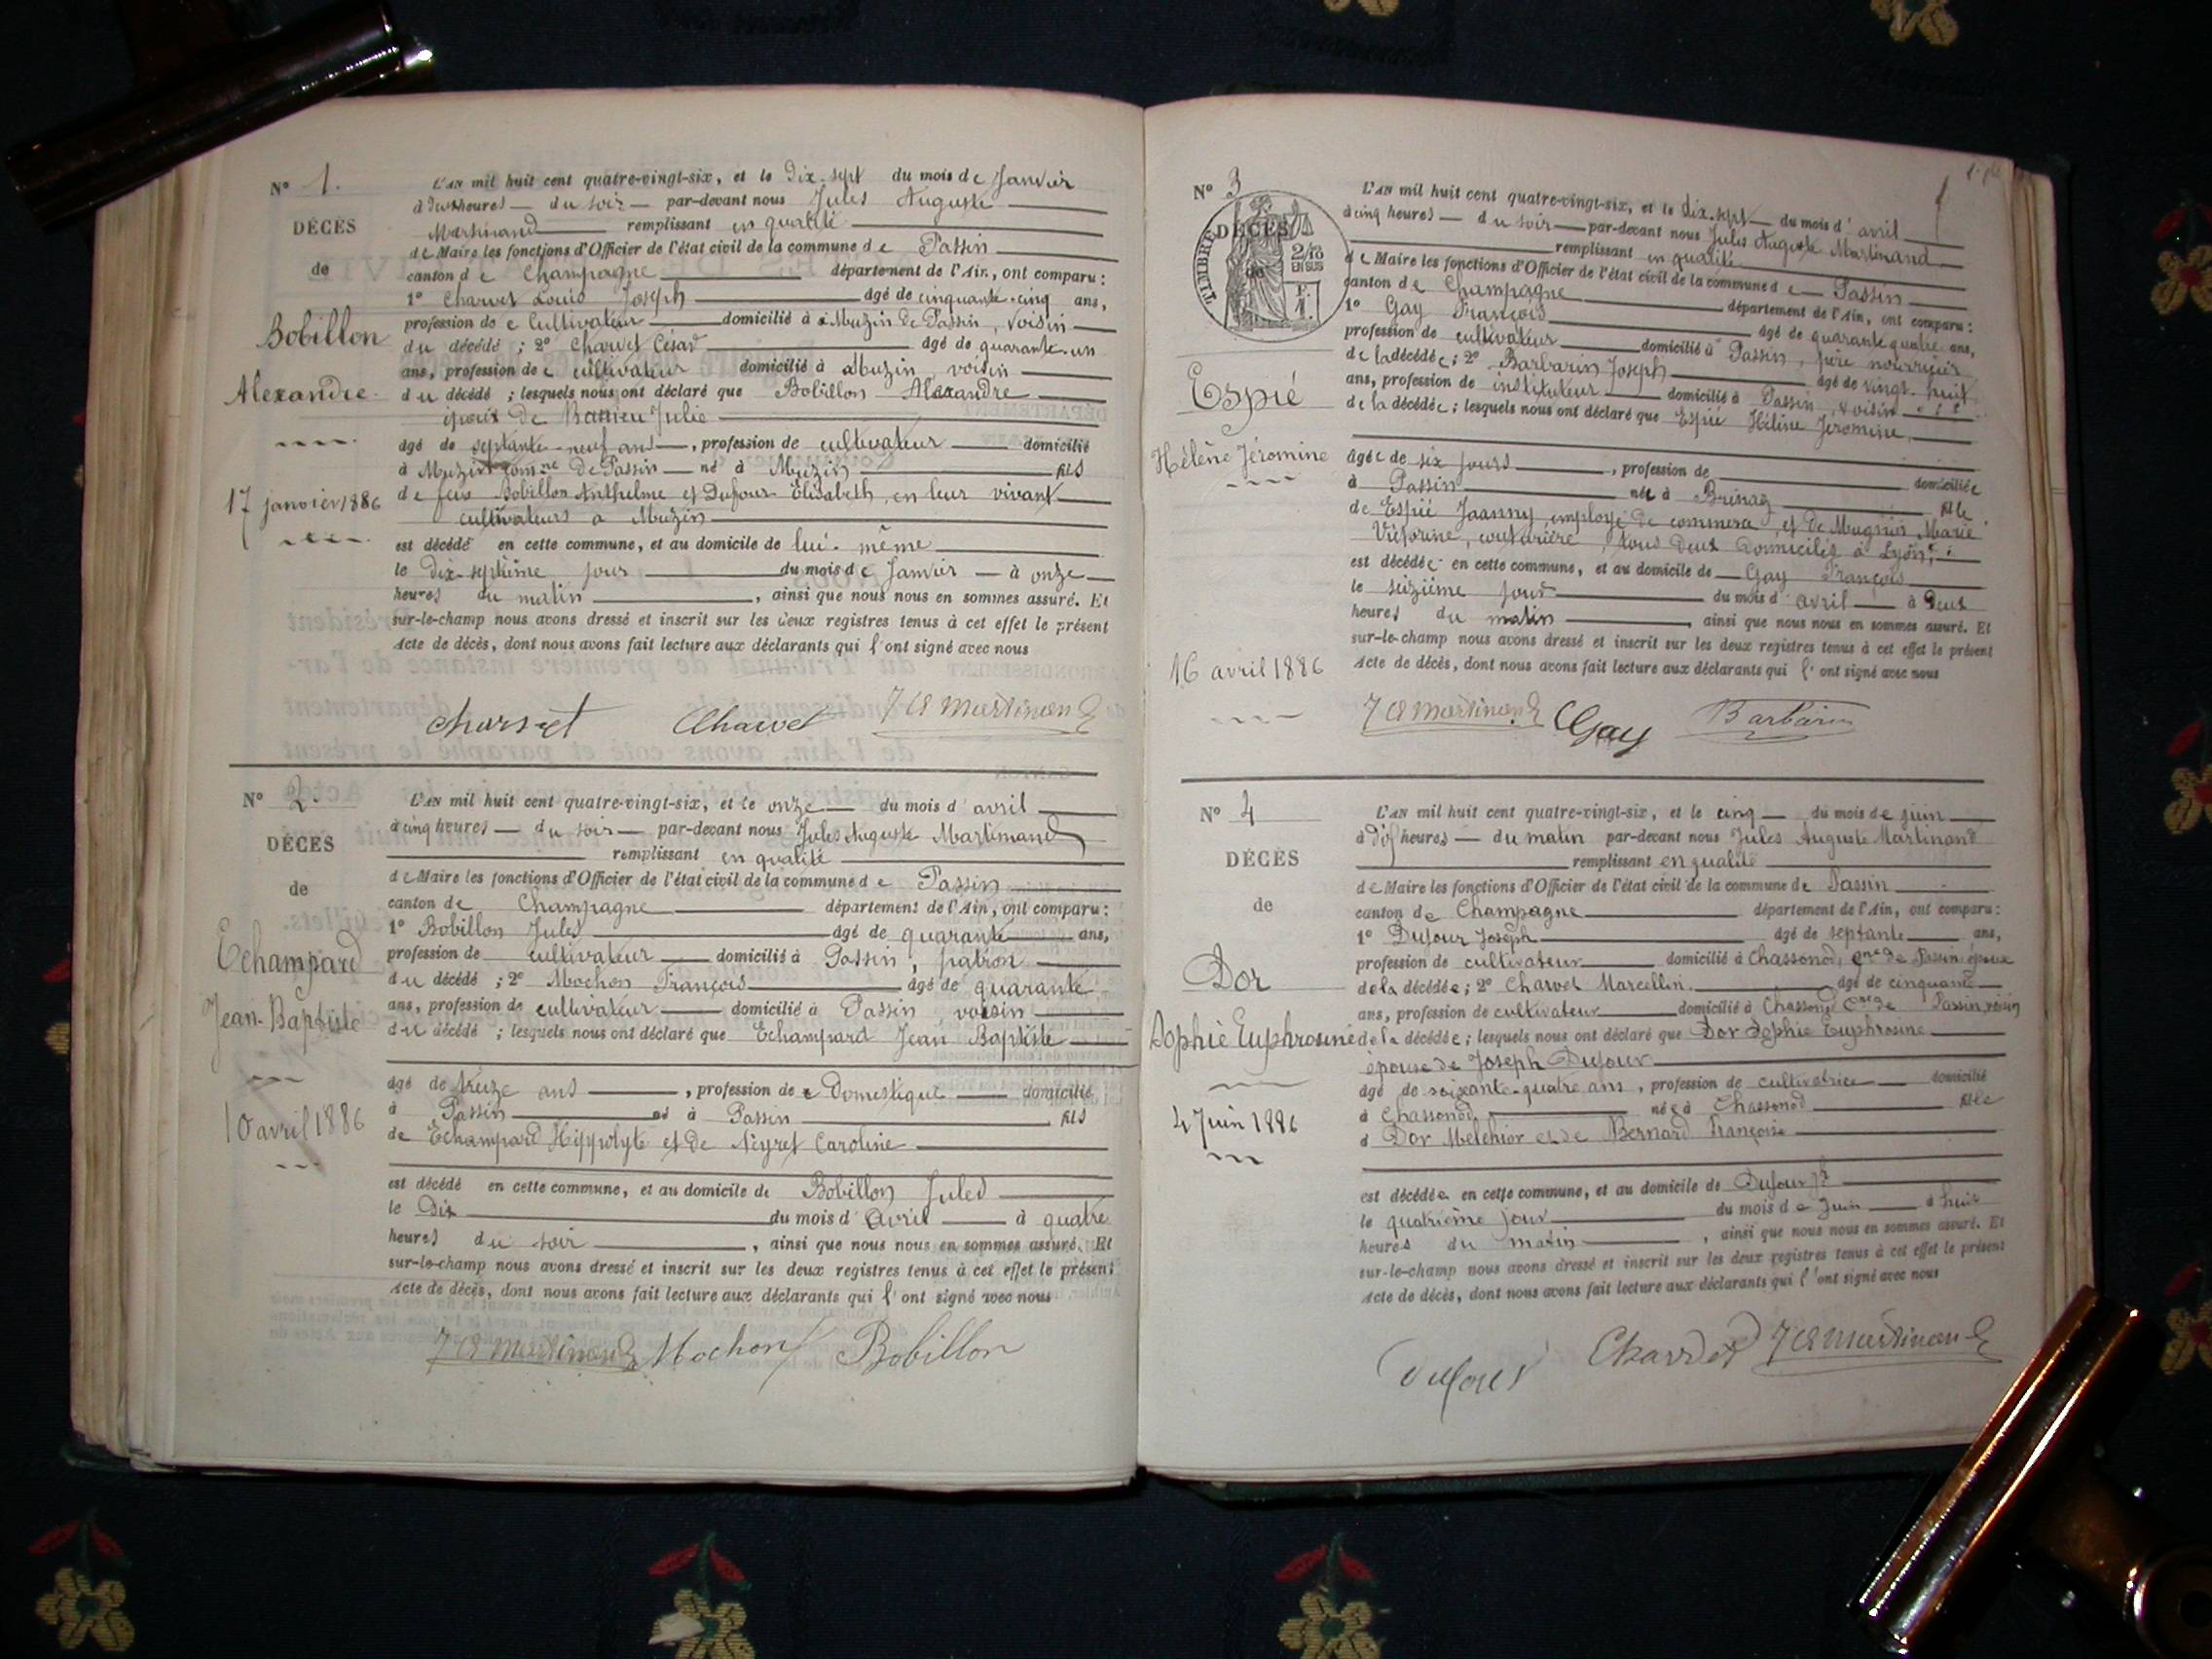 N° 1.
DÉCÈS
de
Bobillon
Alexandre
17 janvier 1886
L'AN mil huit cent quatre-vingt-six, et le dix-sept du mois de Janvier
à deux heures du soir par-devant nous Jules Auguste
Martinand remplissant en qualité
de Maire les fonctions d'Officier de l'état civil de la commune de Passin
canton de Champagne département de l'Ain, ont comparu :
1° Charvet Louis Joseph âgé de cinquante-cinq ans,
profession de cultivateur domicilié à Muzin de Passin, voisin
du décédé ; 2° Charvet César âgé de quarante-un
ans, profession de cultivateur domicilié à Muzin voisin
du décédé ; lesquels nous ont déclaré que Bobillon Alexandre
époux de Julie
âgé de septante-neuf ans, profession de cultivateur domicilié
à Muzin comne de Passin né à Muzin fils
de feu Bobillon Anthelme et Dufour Elisabeth, en leur vivant
cultivateurs à Muzin
est décédé en cette commune, et au domicile de lui-même
le dix-septième jour du mois de Janvier à onze
heures du matin, ainsi que nous nous en sommes assuré. Et
sur-le-champ nous avons dressé et inscrit sur les deux registres tenus à cet effet le présent
Acte de décès, dont nous avons fait lecture aux déclarants qui l'ont signé avec nous
Charvet Charvet J A Martinand
N° 2.
DÉCÈS
de
Echampard
Jean-Baptiste
10 avril 1886
L'AN mil huit cent quatre-vingt-six, et le onze du mois d'avril
à cinq heures du soir par-devant nous Jules Auguste Martinand
remplissant en qualité
de Maire les fonctions d'Officier de l'état civil de la commune de Passin
canton de Champagne département de l'Ain, ont comparu :
1° Bobillon Jules âgé de quarante ans,
profession de cultivateur domicilié à Passin, patron
du décédé ; 2° Mochon François âgé de quarante
ans, profession de cultivateur domicilié à Passin voisin
du décédé ; lesquels nous ont déclaré que Echampard Jean Baptiste
âgé de treize ans, profession de domestique domicilié
à Passin né à Passin fils
de Echampard Hippolyte et de Neyret Caroline
est décédé en cette commune, et au domicile de Bobillon Jules
le dix du mois d'Avril à quatre
heures du soir, ainsi que nous nous en sommes assuré. Et
sur-le-champ nous avons dressé et inscrit sur les deux registres tenus à cet effet le présent
Acte de décès, dont nous avons fait lecture aux déclarants qui l'ont signé avec nous
J A Martinand Mochon Bobillon
N° 3
DÉCÈS
de
TIMBRE
2/10
EN SUS
Espié
Hélène Jéromine
16 avril 1886
L'AN mil huit cent quatre-vingt-six, et le dix-sept du mois d'avril
à cinq heures du soir par-devant nous Jules Auguste Martinand
remplissant en qualité
de Maire les fonctions d'Officier de l'état civil de la commune de Passin
canton de Champagne département de l'Ain, ont comparu :
1° Gay François âgé de quarante quatre ans,
profession de cultivateur domicilié à Passin, père nourricier
de la décédée ; 2° Barbarin Joseph âgé de vingt-huit
ans, profession de instituteur domicilié à Passin, voisin
de la décédée ; lesquels nous ont déclaré que Espié Hélène Jéromine,
âgée de six jours, profession de domiciliée
à Passin née à fille
de Espié Joanny employé de commerce, et de Mugnier Marie
Victorine, couturière, tous deux domiciliés à Lyon
est décédée en cette commune, et au domicile de Gay François
le seizième jour du mois d'avril à deux
heures du matin, ainsi que nous nous en sommes assuré. Et
sur-le-champ nous avons dressé et inscrit sur les deux registres tenus à cet effet le présent
Acte de décès, dont nous avons fait lecture aux déclarants qui l'ont signé avec nous
J A Martinand Gay Barbarin
N° 4
DÉCÈS
de
Dor
Sophie Euphrosine
4 Juin 1886
L'AN mil huit cent quatre-vingt-six, et le cinq du mois de juin
à dix heures du matin par-devant nous Jules Auguste Martinand
remplissant en qualité
de Maire les fonctions d'Officier de l'état civil de la commune de Passin
canton de Champagne département de l'Ain, ont comparu :
1° Dufour Joseph âgé de septante ans,
profession de cultivateur domicilié à Chassonod, Cne de Passin époux
de la décédée ; 2° Charvet Marcellin âgé de cinquante
ans, profession de cultivateur domicilié à Chassonod Cne de Passin, voisin
de la décédée ; lesquels nous ont déclaré que Dor Sophie Euphrosine
épouse de Joseph Dufour
âgé de soixante-quatre ans, profession de cultivatrice domicilié
à Chassonod, née à Chassonod fille
d Dor Melchior et de Bernard Françoise
est décédée en cette commune, et au domicile de Dufour Jh
le quatrième jour du mois de Juin à huit
heures du matin, ainsi que nous nous en sommes assuré. Et
sur-le-champ nous avons dressé et inscrit sur les deux registres tenus à cet effet le présent
Acte de décès, dont nous avons fait lecture aux déclarants qui l'ont signé avec nous
Dufour Charvet J A Martinand